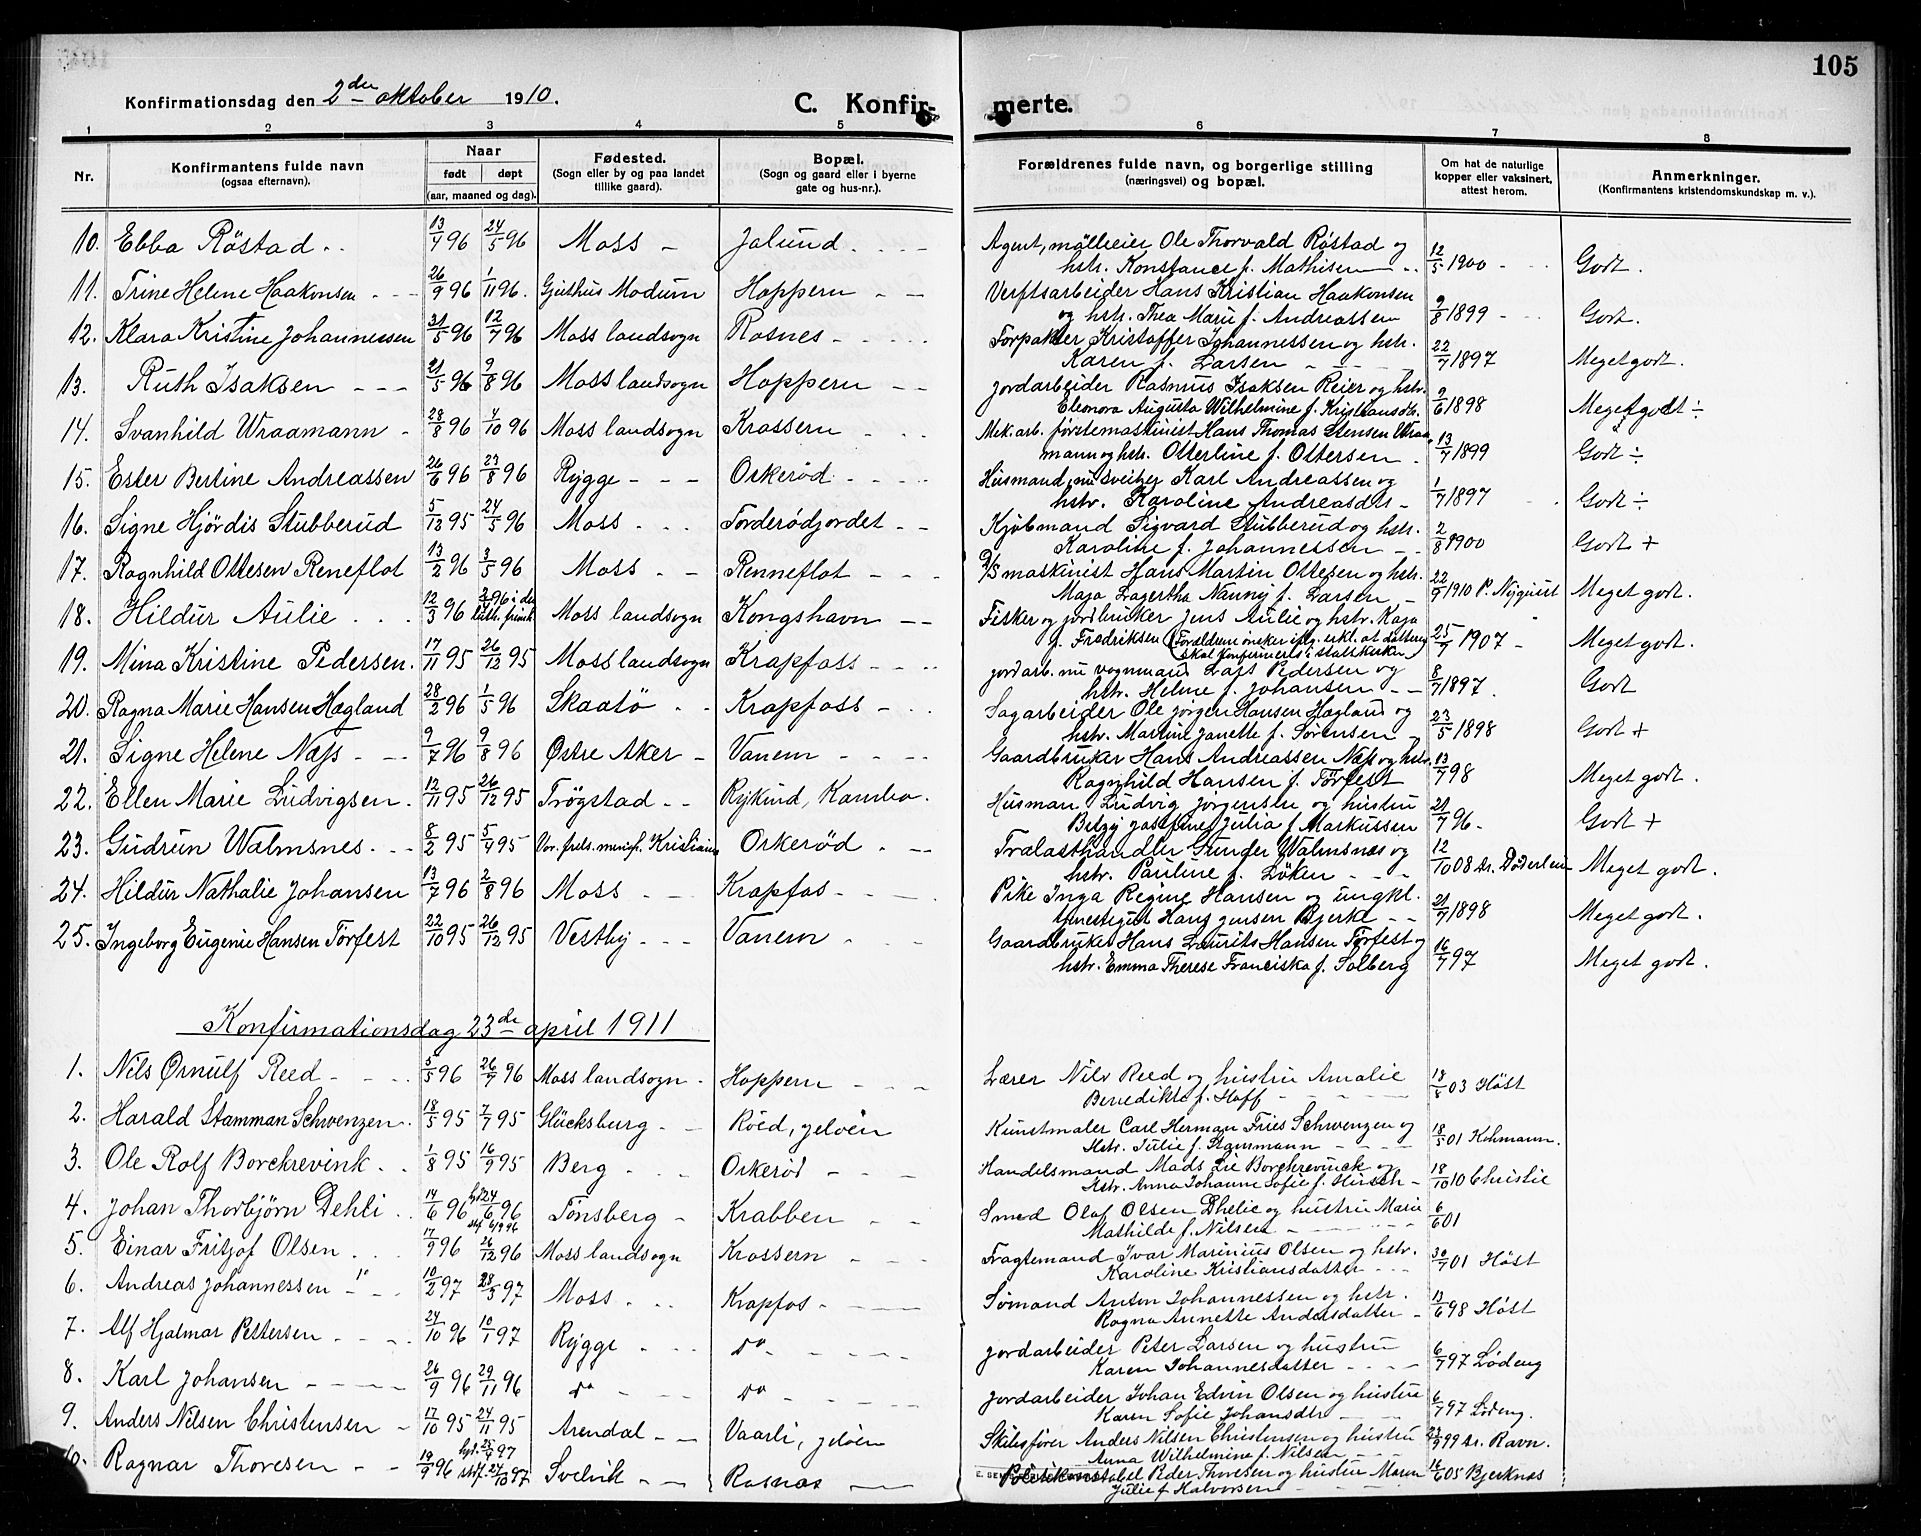 105
Konfirmationsdag den 2den oktober 1910.
C. Konfirmerte.
1 2 3 4 5 6 7 8
Nr.
Konfirmantens fulde navn
(ogsaa efternavn).
Naar
født døpt
(aar, maaned og dag).
Fødested.
(Sogn eller by og paa landet
tillike gaard).
Bopæl.
(Sogn og gaard eller i byerne
gate og hus-nr.).
Forældrenes fulde navn, og borgerlige stilling
(næringsvei) og bopæl.
Om hat de naturlige
kopper eller vaksinert,
attest herom.
Anmerkninger.
(Konfirmantens kristendomskundskap m. v.).
10. Ebba Röstad 13/4 96 24/5 96 Moss Jølund
Agent, mölleeier Ole Thorvald Røstad og
hstr. Konstance f. Mathisen 12/5 1900 Godt.
11. Trine Helene Haakonsen 26/9 96 1/11 96. Gjethus Modum Hoppern
Verftsarbeider Hans Kristian Haakonsen
og hstr. Thea Marie f. Andreassen 9/8 1899 Godt.
12. Klara Kristine Johannessen 31/5 96 12/7 96 Moss landsogn Rosnes
Forpakter Kristoffer Johannessen og hstr.
Karen f. Larsen 22/7 1897 Meget godt.
13. Ruth Isaksen 21/5 96 9/8 96 Moss landsogn Hoppern
Jordarbeider Rasmus Isaksen Reier og hstr.
Eleonora Augusta Wilhelmine f. Kristiansdtr. 9/6 1898 Meget godt ÷
14. Svanhild Wraamann 28/8 96 4/10 96 Moss landsogn Krossern
Mek. arb. förstemaskinist Hans Thomas Stensen Wraa
mann og hstr. Otterline f. Ottersen 13/7 1899 Godt ÷
15. Ester Bertine Andreassen 26/6 96 23/8 96 Rygge Orkerød
Husmand, nu sveitser Karl Andreassen og
hstr. Karoline Andreasdtr 1/7 1897 Godt ÷
16. Signe Hjördis Stubberud 5/12 95 24/5 96 Moss Torderödjordet
Kjöbmand Sigvard Stubberud og hstr.
Karoline f. Johannessen 2/8 1900 Godt +
17. Ragnhild Ottesen Reneflot 13/2 96 3/5 96 Moss Renneflot
D/S maskinist Hans Martin Ottesen og hstr.
Maja Lagertha Nanny f. Larsen 22/9 1910 P. Nyquist Meget godt.
18. Hildur Aulie 12/3 96 96 i den luth. frimk. Moss landsogn Kongshavn
Fisker og jordbruker Jens Aulie og hstr. Kaja
f. Fredriksen (Forældrene önsker iflg. erkl. at datteren
skal konfirmeres i statskirken) 25/7 1907 Meget godt.
19. Mina Kristine Pedersen. 17/11 95 26/12 95 Moss landsogn Krapfoss
Jordarb. nu vognmand Lars Pedersen og
hstr. Helene f. Johansen 8/7 1897. Godt
20. Ragna Marie Hansen Hægland 28/2 96 1/5 96 Skaatö Krapfoss
Sagarbeider Ole Jörgen Hansen Hægland og
hstr. Martine Janette f. Sörensen 23/5 1898 Godt +
21. Signe Helene Næss 9/7 96 9/8 96 Østre Aker Vanem
Gaardbruker Hans Andreassen Næss og hstr.
Ragnhild Hansen f. Törfest 13/7 98 Meget godt.
22. Ellen Marie Ludvigsen. 12/11 95 26/12 95 Trögstad Rykind, Kambo.
Husman Ludvig Jörgensen og hustru
Betzy Josefine Julia f. Markussen 21/7 96. Godt +
23. Gudrun Walmsnes. 8/2 95 5/4 95 Vor frels. menigh. Kristiania Orkerød
Trælasthandler Gunder Walmsnæs og
hstr. Pauline f. Löken 12/10 08 Dr. Döderlein Meget godt.
24. Hildur Nathalie Johansen 13/7 96 2/8 96 Moss Krapfos
Pike Inga Regine Hansen og ungkl.
tjenestegut Hans Jensen Bjerke 21/7 1898 Meget godt.
25. Ingeborg Eugenie Hansen Törfest 22/10 95 26/12 95 Vestby Vanem
Gaardbruker Hans Laurits Hansen Törfest og
hstr. Emma Therese Franciska f. Solberg 16/7 97 Meget godt.
Konfirmationsdag 23de april 1911
1. Nils Ørnulf Reed 5/5 96 26/7 96 Moss landsogn Hoppern
Lærer Nils Reed og hustru Amalie
Benedikte f. Hoff 18/8 03 Höst
2. Harald Stamman Schwenzen 18/5 95 7/7 95 Glücksburg Röed, Jelöen
Kunstmaler Carl Herman Fries Schwenzen og
Hstr. Julie f. Stammann 18/5 01 Kohmann.
3. Ole Rolf Borchrevink 1/8 95 16/9 95 Berg Orkeröd
Handelsmand Mads Lie Borchrevinck og
Hstr. Anna Johanne Sofie f. Hirsch 18/10 10 Christie
4. Johan Thorbjörn Dehli 14/6 96 hjd. 24/6 96 stf. 6/9 96 Tönsberg Krabben
Smed Olaf Olsen Dhelie og hustru Marie
Mathilde f. Nilsen 6/6 01
5. Einar Fritjof Olsen 17/9 96 26/12 96 Moss landsogn Krossern
Fragtemand Ivar Marinius Olsen og hstr.
Karoline Kristiansdatter 30/7 01 Höst
6. Andreas Johannessen 10/2 97 28/3 97 Moss Krapfos
Sömand Anton Johannessen og hstr.
Ragna Annette Andersdatter 13/6 98 Höst
7. Alf Hjalmar Pettersen 24/10 96 10/1 97 Rygge do
Jordarbeider Peter Larsen og hustru
Karen Johannesdatter 6/7 97 Lödeng
8. Karl Johansen 26/9 96 29/11 96 do do
Jordarbeider Johan Edvin Olsen og hustru
Karen Sofie Johansdtr 6/7 97 Lödeng.
9. Anders Nilsen Christensen 17/10 95 24/11 95 Arendal Vaarli, Jelöen
Skibsförer Anders Nilsen Christensen og hustru
Anna Wilhelmine f. Nilsen 23/9 99 Dr. Ravn.
10. Ragnar Thoresen 19/9 96 hjd. 25/4 97 stf. 24/10 97 Svelvik Rosnæs
Politikonstabel Peder Thoresen og hustru Maren
Julie f. Halvorsen 16/6 05 Bjerknæs